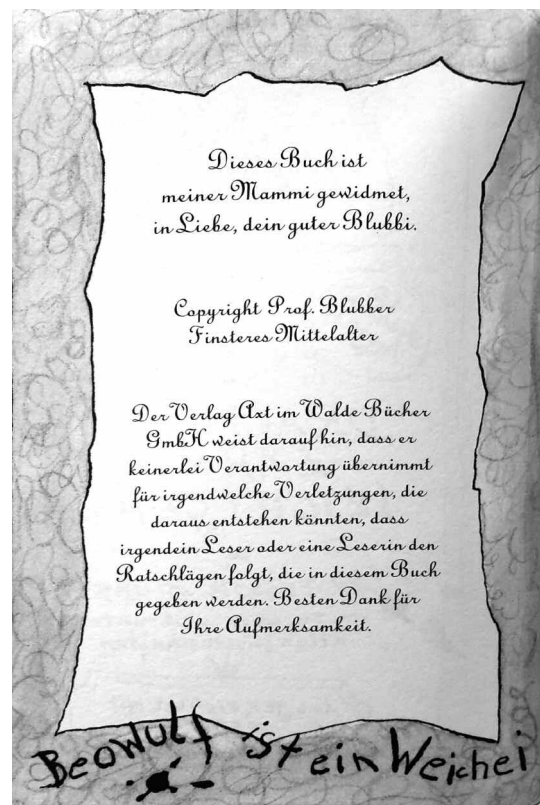 Dieses Buch ist
meiner Mammi gewidmet,
in Liebe, dein guter Blubbi.
Copyright Prof. Blubber
Finsteres Mittelalter
Der Verlag Axt im Walde Bücher
GmbH weist darauf hin, dass er
keinerlei Verantwortung übernimmt
für irgendwelche Verletzungen, die
daraus entstehen könnten, dass
irgendein Leser oder eine Leserin den
Ratschlägen folgt, die in diesem Buch
gegeben werden. Besten Dank für
Ihre Aufmerksamkeit.
Beowulf ist ein Weichei